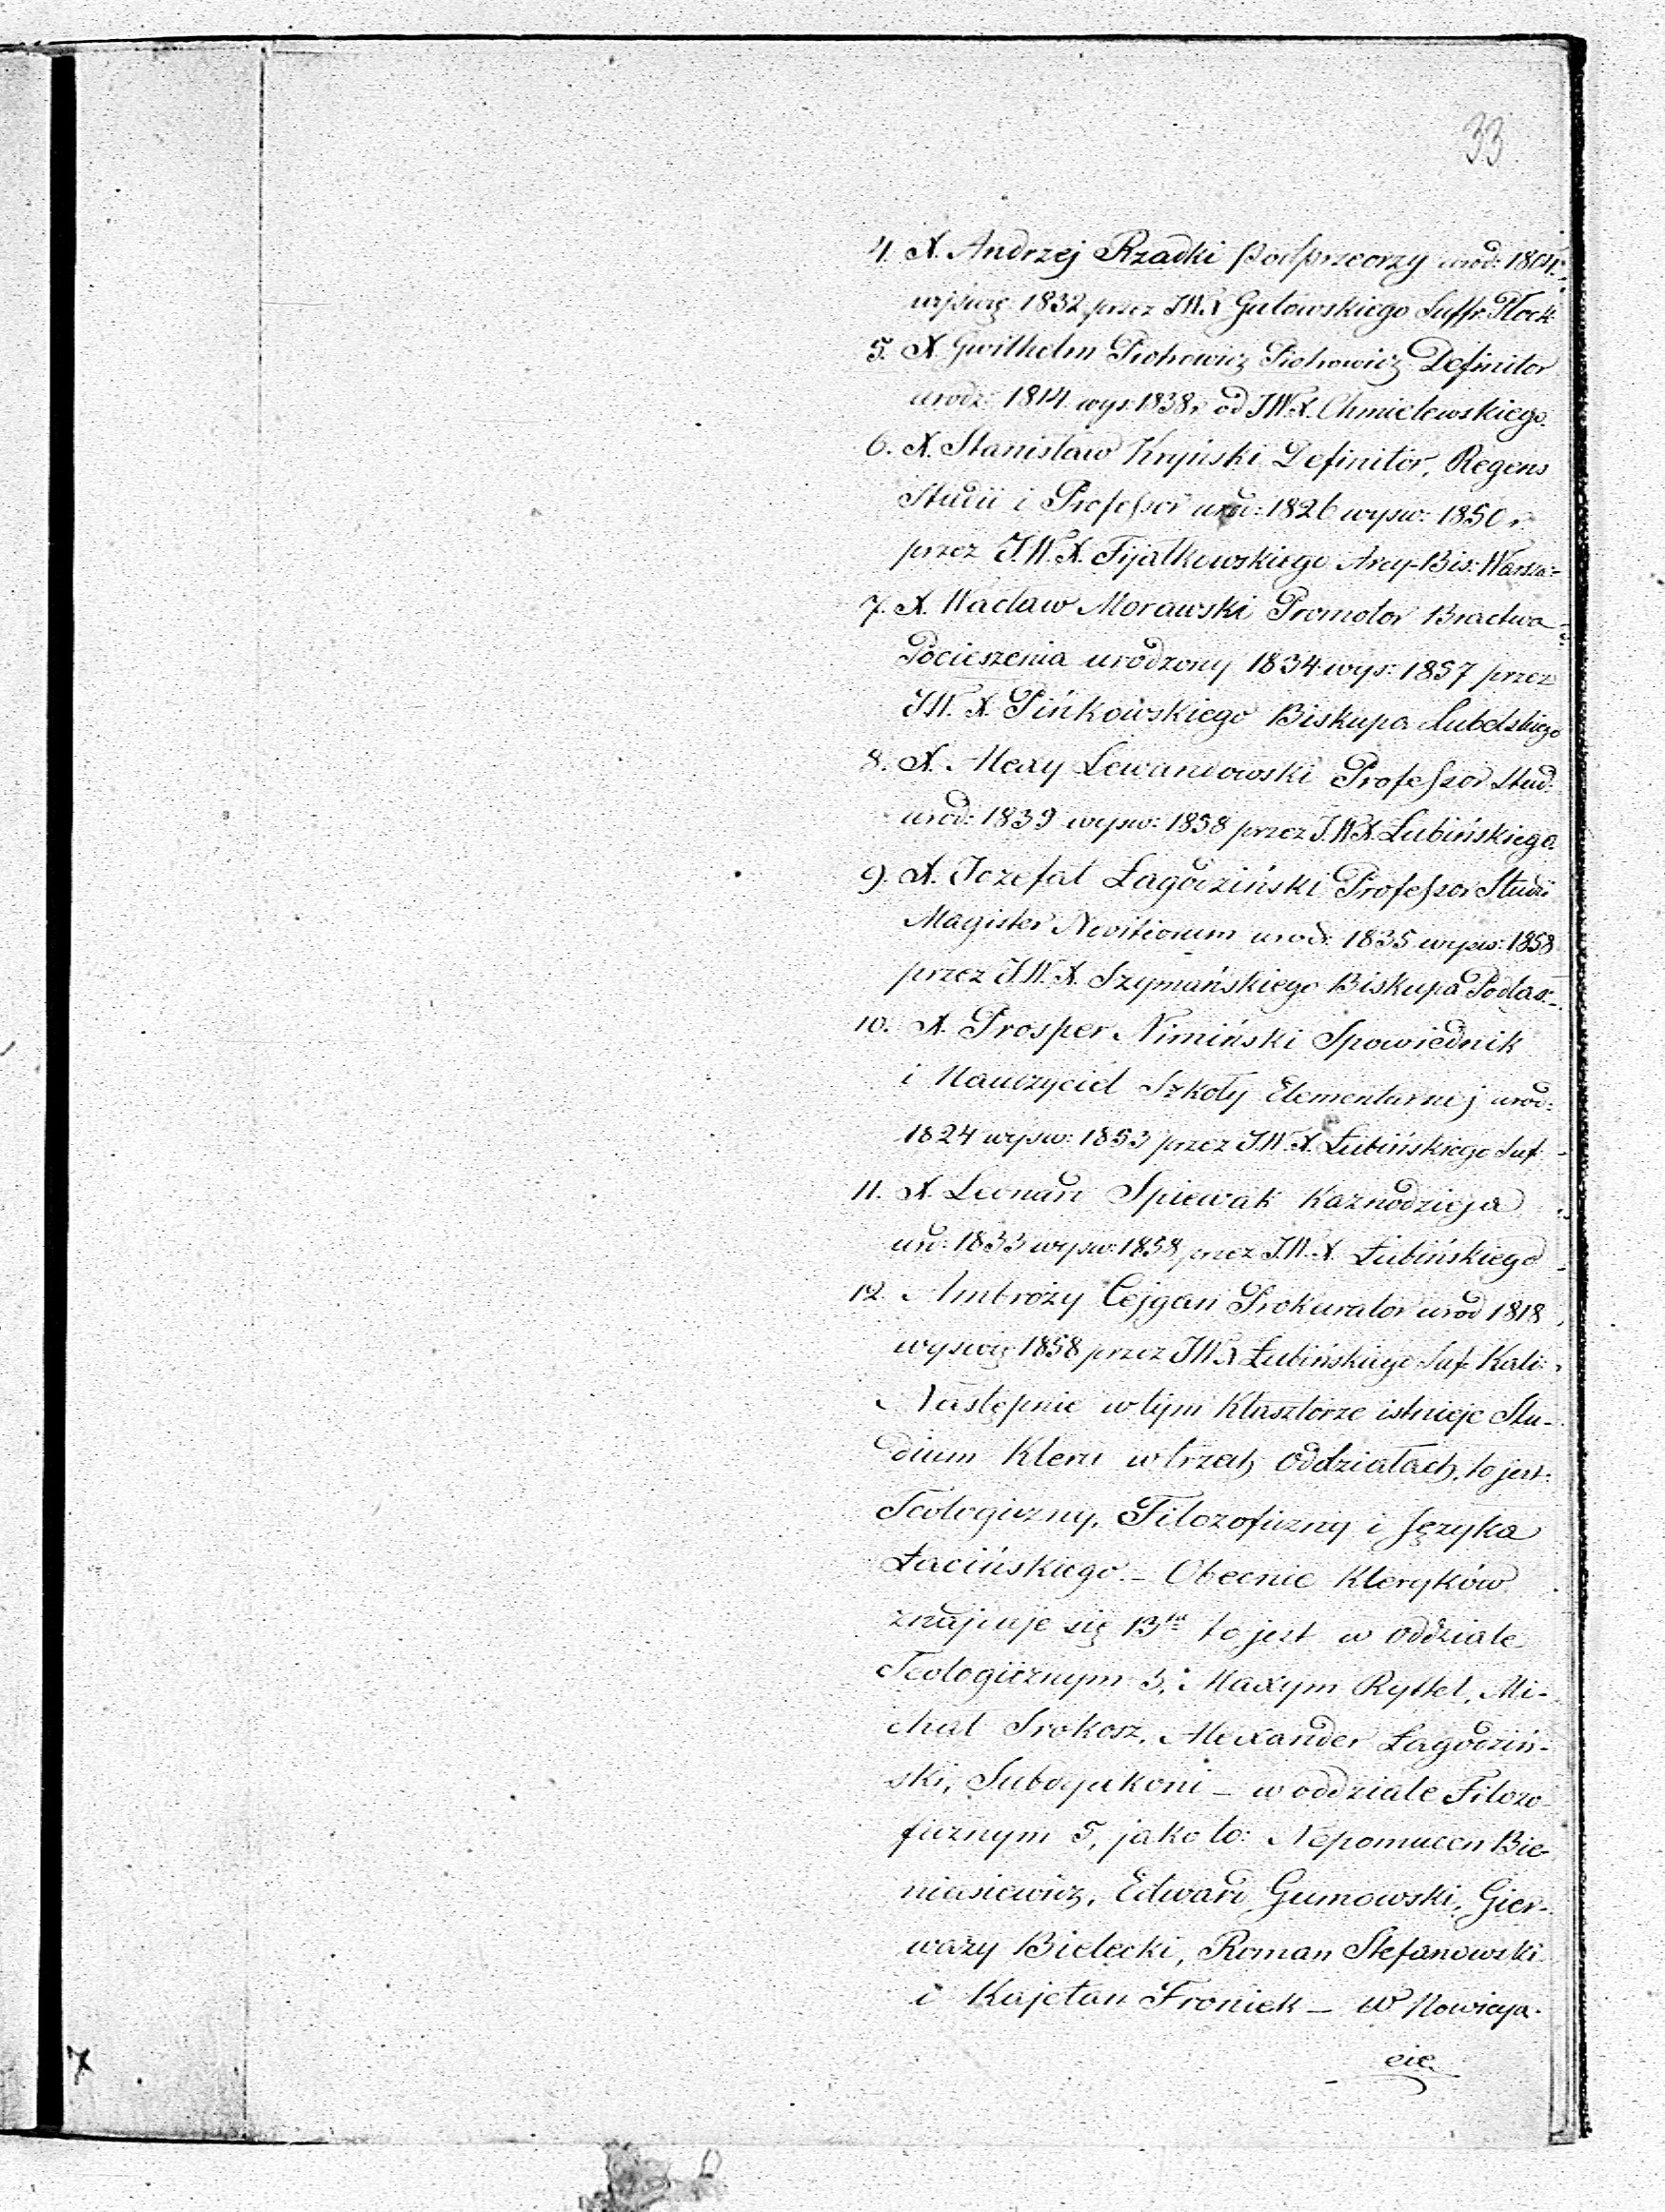 33
4. X. Andrzej Rzadki Podprzeorzy urod: 1804.
wyświę 1832 przez JW.X Gutowskiego Suffr. Płock
5. X. Gwilhelm Piotrowicz Piotrowicz Definitor
urodz: 1814. wys: 1838 r. od JW.X. Chmielewskiego.
6. X. Stanisław Kryński Definitor, Regens
Studii i Professor urod: 1826 wysw: 1850 r.
przez J.W.X. Fijałkowskiego Arcy-Bis: Warsza:
7. X. Wacław Morawski Promotor Bractwa
Pocieszenia urodzony 1834 wys: 1857 przez
JW. X. Pińkowskiego Biskupa Lubelskiego
8. X. Alexy Lewandowski Professor Stud:
urod: 1839 wysw: 1858 przez J.W.X. Łubińskiego.
9. X. Jozefat Łagodziński Professor Studii
Magister Novitiorum urod: 1835 wysw: 1858
przez J.W.X. Szymańskiego Biskupa Podlas:
10. X. Prosper Nimiński Spowiednik
i Nauczyciel Szkoły Elementarnej urod:
1824 wysw: 1853 przez J.W.X. Łubińskiego Suf
11. X. Leonard Spiewak Kaznodzieja
urd: 1833 wysw: 1858 przez J.W.X. Łubińskiego
12. Ambroży Cejgan Prokurator urod 1818
wyswię 1858 przez JW.X Łubińskiego Suf. Kali:
Następnie w tym Klasztorze istnieje Stu-
dium Kleru w trzech oddziałach, to jest:
Teologiczny, Filozoficzny i Języka
Łacińskiego. – Obecnie Kleryków
znajduje się 13tu to jest w oddziale
Teologicznym 3, Maxym Ryttel, Mi-
chał Srokosz, Alexander Łagodziń-
ski, Subdyakoni – w oddziale Filozo-
ficznym 5, jako to: Nepomucen Bie-
niasiewicz, Edward Gumowski, Gier-
wazy Bielecki, Roman Stefanowski
i Kajetan Froniek – w Nowicya-
cie.